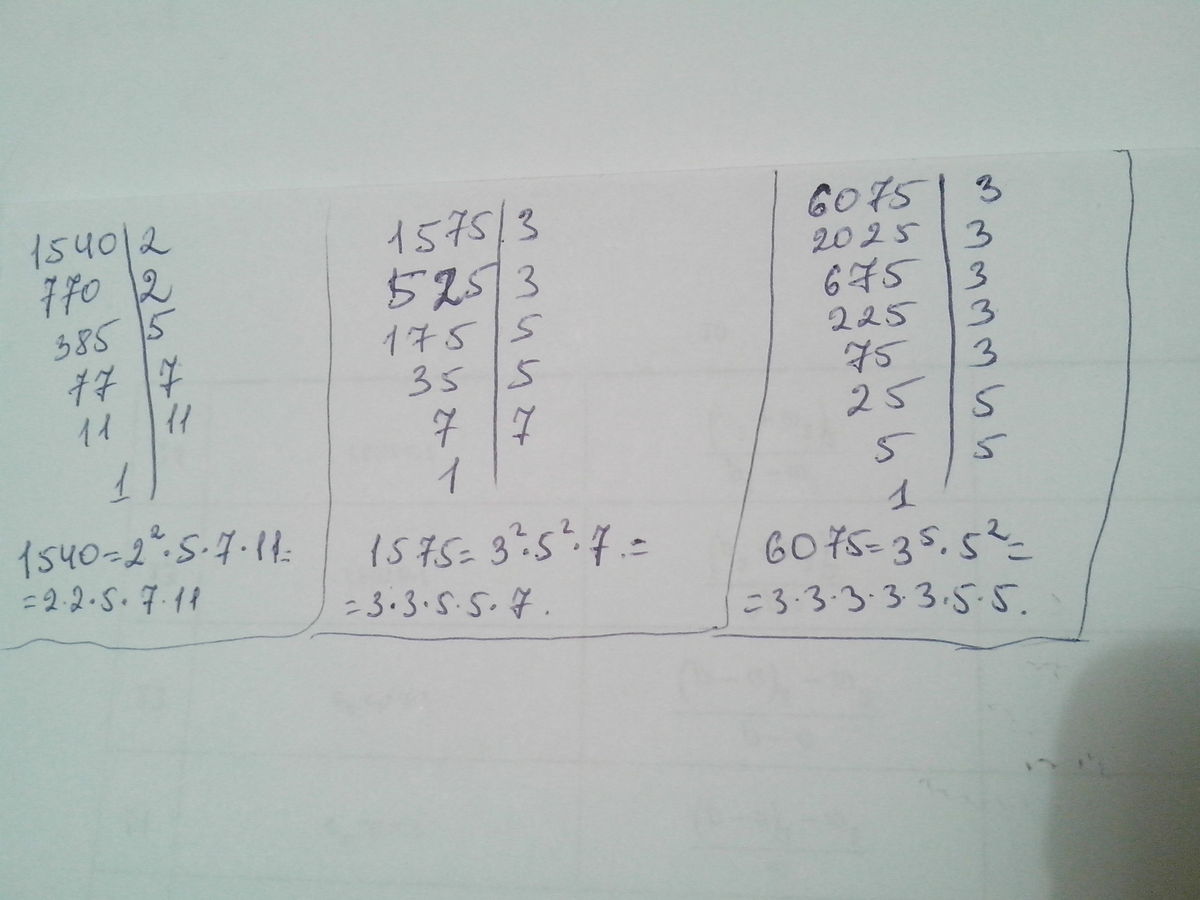 1540 | 2
770 | 2
385 | 5
77 | 7
11 | 11
1
1540=2²·5·7·11=
=2·2·5·7·11
1575 | 3
525 | 3
175 | 5
35 | 5
7 | 7
1
1575=3²·5²·7.=
=3·3·5·5·7.
6075 | 3
2025 | 3
675 | 3
225 | 3
75 | 3
25 | 5
5 | 5
1
6075=3⁵·5²=
=3·3·3·3·3·5·5.